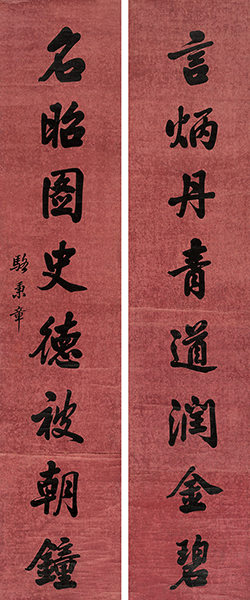 言炳丹青道润金碧
名昭图史德被朝鐘
駱秉章